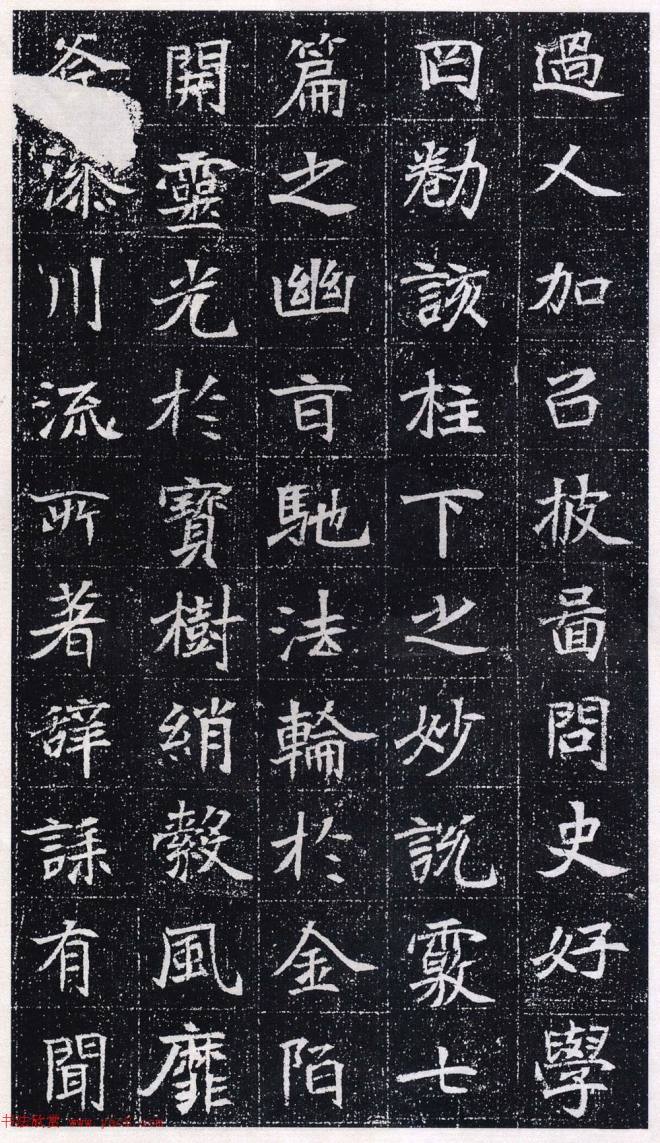 過人加㠯披啚問史好學
罔勌該柱下之妙說覈七
篇之幽旨馳法輪於金陌
開靈光於寶樹綃縠風靡
川流所著辭誄有聞
书法欣赏 www.yac8.com